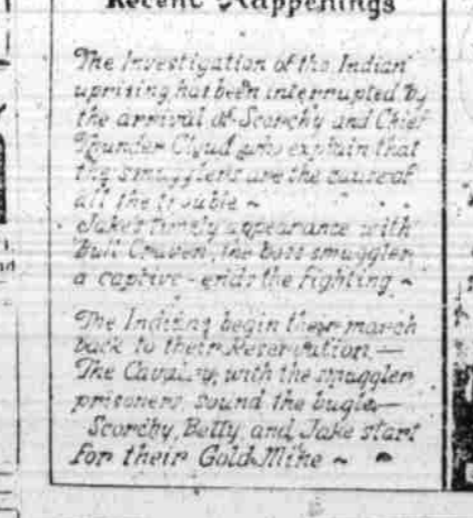 Recent Happenings
The Investigation of the Indian
uprising has been interrupted by
the arrival of Scorchy and Chief
Thunder Cloud who explain that
the smugglers are the cause of
all the trouble ~
Jake's timely appearance with
'Bull Craven', the boss smuggler,
a captive - ends the fighting ~
The Indians begin their march
back to their Reservation. —
The Cavalry, with the smuggler
prisoners, sound the bugle —
Scorchy, Betty, and Jake start
for their Gold Mine ~